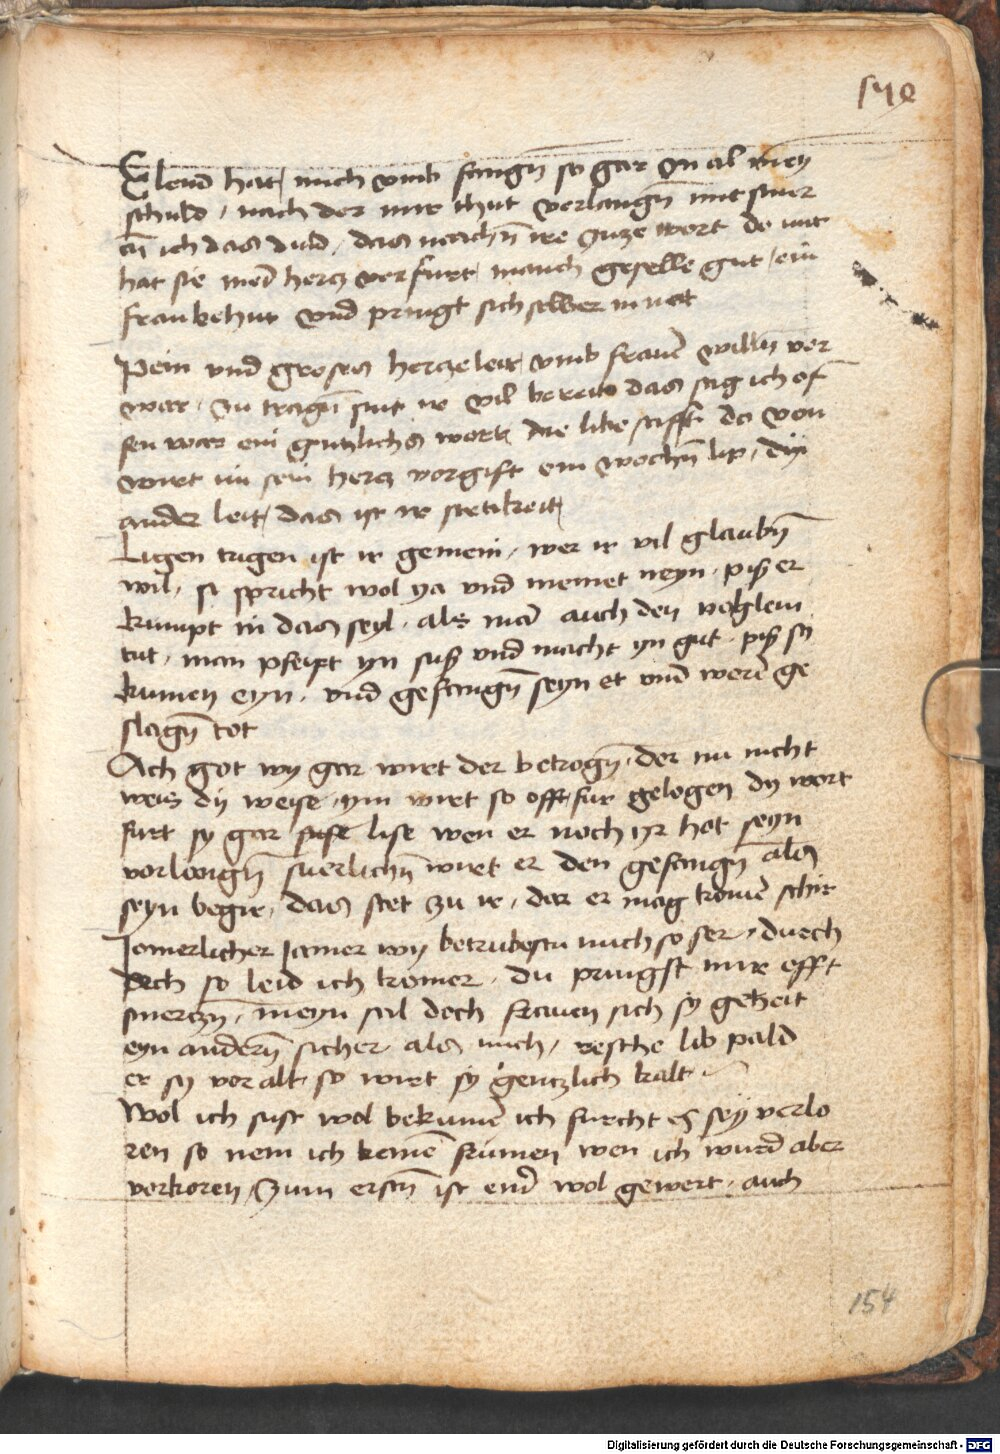 Elend hat mich vmb fangn̄ so gar on al meyn
schuld / nach der mir thut verlangn̄ mit smer
czn̄ ich das duld / das machn̄ ire susze wort do mit
hat sie mēn hercz verfurt / manch geselle gut / ein
frau behut vnd pringt sich selber in not
Pein vnd groses herczeleit vmb frauē willn̄ vor
war / zu tragn̄ sint ir vil bereit / das sag ich of
fen war ein gentzlichs wort die libe stifft do von
wirt im sein hercz vorgift ein wochn̄ lip / dy
ander leit / das ist ir stetikeit
Ligen trigen ist ir gemein / wer ir vil glaubn̄
wil / si spricht wol ya vnd meinet neyn / pisz er
kumpt in das seyl / als mā auch den voglein
tut / man pfeipt yn susz vnd macht yn gut / pisz sy
kumen eyn / vnd gefangn̄ seyn et vnd werē ge
slagn̄ tot
Ach got wy gar wirt der betrogn̄ / der nu nicht
weis dy weise / ym wirt so offt fur gelogen dy wort
furt sy gar lise wen er noch yr hot seyn
vorlangn̄ suerlichn̄ wirt er den gefangn̄ als
seyn begir / das stet zu ir / der er mag komē schir
Jemerlicher Jamer wy betrubestu mich so ser / durch
dich so leid ich komer / du pringst mir offt
smerczn̄ / meyn sal doch frauen sich sy geheit
eyn anderē sicher als mich / resche lib pald
er sy vor alt / so wirt sy gentzlich kalt
Wol ich sust wol bekumē ich furcht es sey verlo
ren so nem ich keinē frumen wen ich wurd aber
verkoren / Zum erstn̄ ist end wol gewert / auch
154
Digitalisierung gefördert durch die Deutsche Forschungsgemeinschaft - DFG